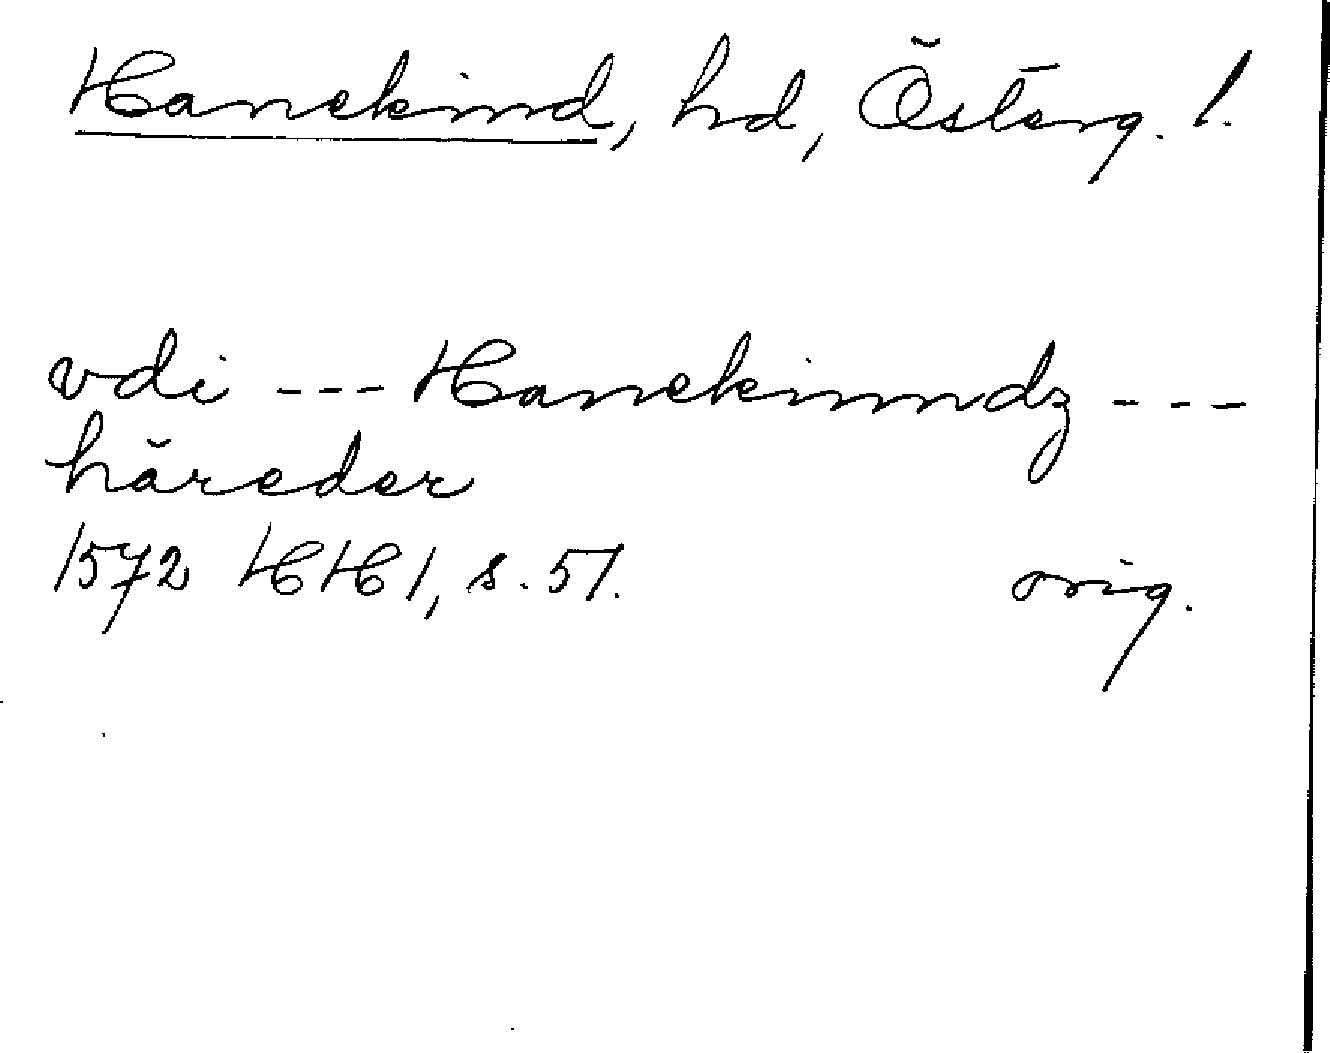 Hanekind, hd, Österg. l.
vdi --- Hanekinndz ---
häreder
1572 HH 1, s. 51. orig.